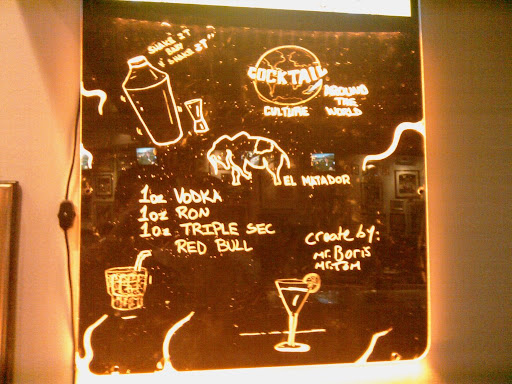 SHAKE IT
BABY
"SHAKE IT"
COCKTAIL
CULTURE
AROUND
THE
WORLD
EL MATADOR
1oz VODKA
1oz RON
1oz TRIPLE SEC
RED BULL
create by:
Mr. Boris
Mr. Tom